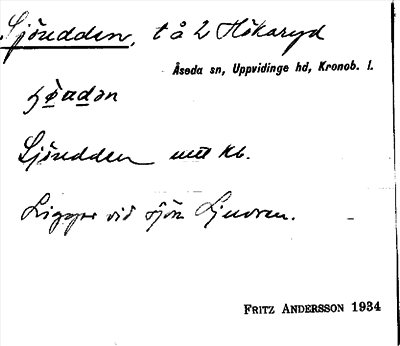 Sjöudden, t å 2 Hökaryd
Åseda sn, Uppvidinge hd, Kronob. l.
Sjöudden utt kb.
Ligger vid sjön Ljuvren.
FRITZ ANDERSSON 1934